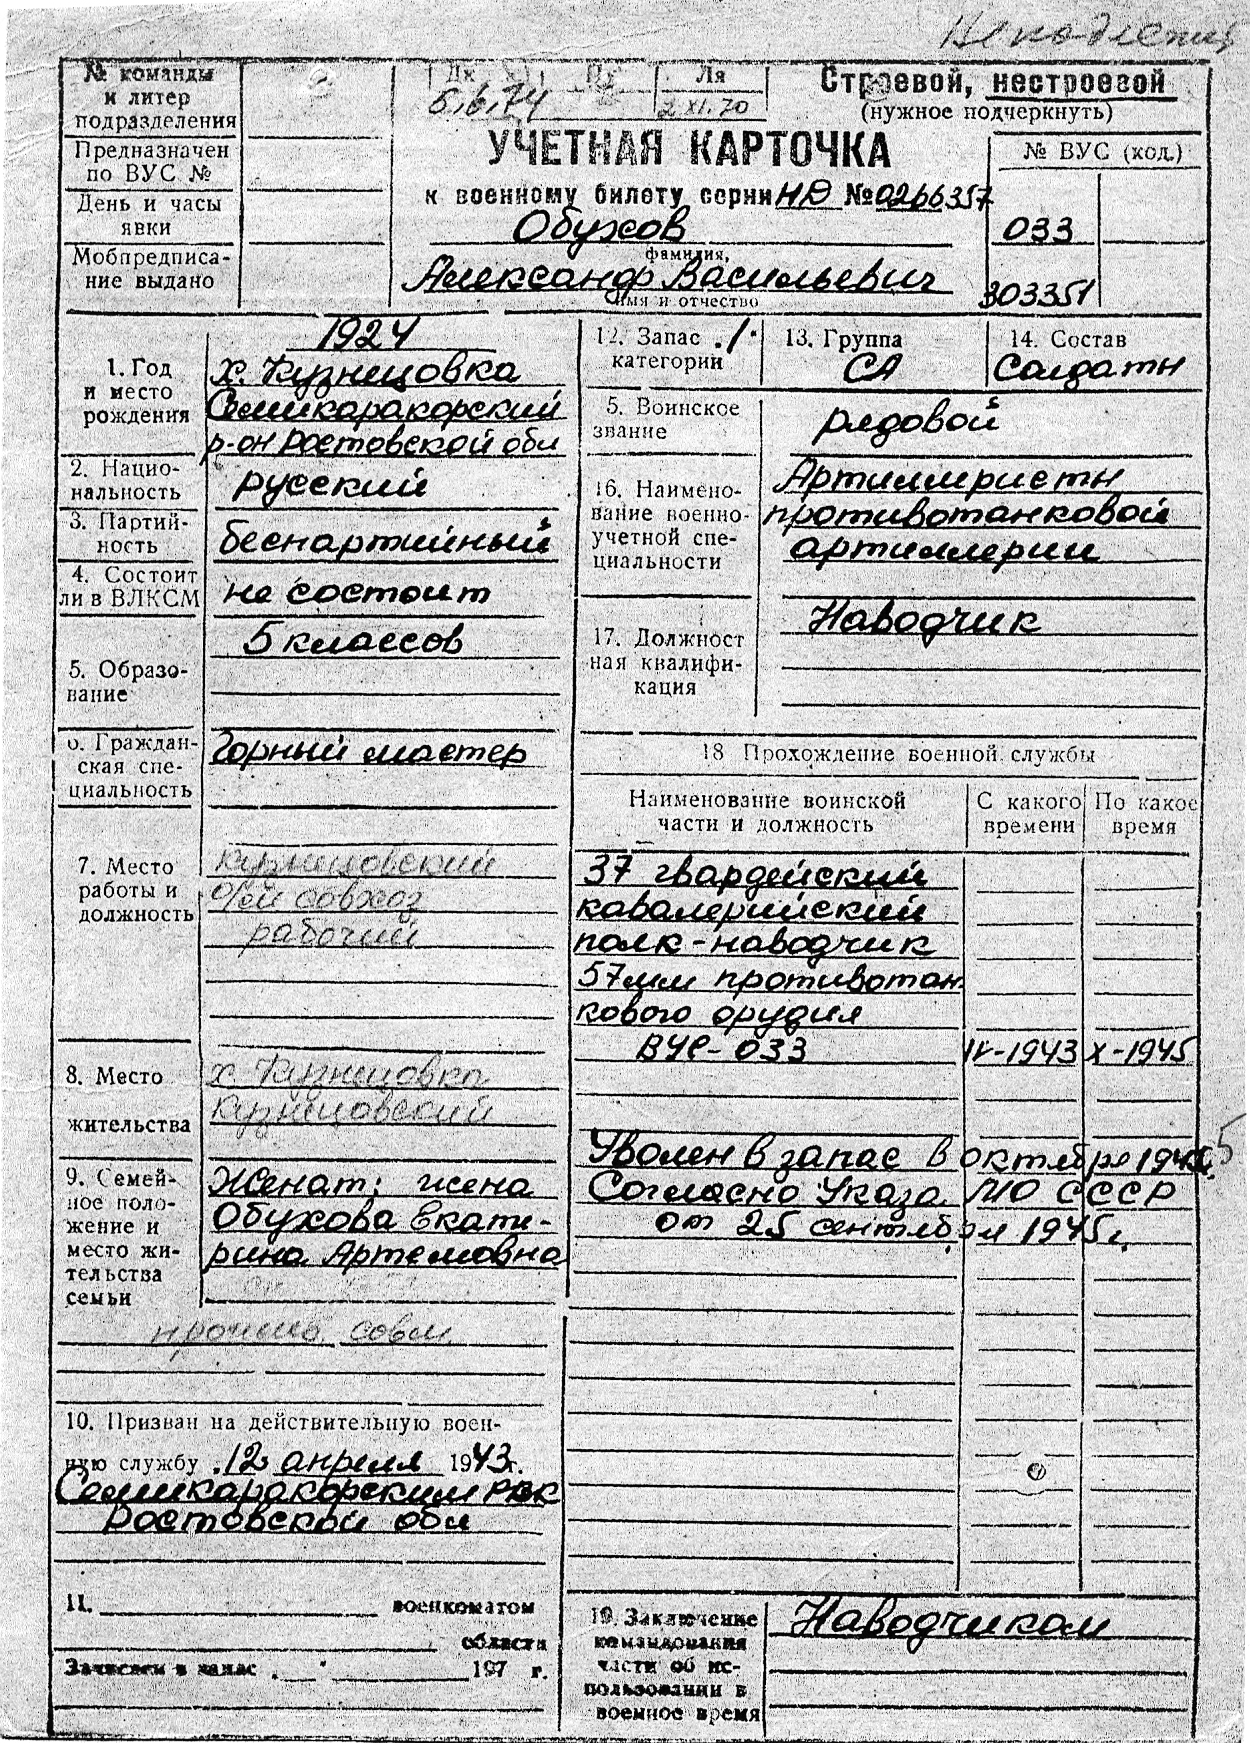 № команды
и литер
подразделения
Предназначен
по ВУС №
День и часы
явки
Мобпредписа-
ние выдано
Ля
6.6.74
2 XI.70
Строевой, нестроевой
(нужное подчеркнуть)
УЧЕТНАЯ КАРТОЧКА
к военному билету серии НД № 0266357
Обухов
фамилия,
Александр Васильевич
имя и отчество
№ ВУС (код.)
033
303351
1. Год
и место
рождения
1924
х. Кузнецовка
Семикаракорский
р-он Ростовской обл
2. Нацио-
нальность
русский
3. Партий-
ность
беспартийный
4. Состоит
ли в ВЛКСМ
не состоит
5. Образо-
вание
5 классов
6. Граждан-
ская спе-
циальность
Горный мастер
7. Место
работы и
должность
Кузнецовский
совхоз
рабочий
8. Место
жительства
х Кузнецовка
Кузнецовский
9. Семей-
ное поло-
жение и
место жи-
тельства
семьи
Женат; жена
Обухова Екате-
рина Артемовна
10. Призван на действительную воен-
ную службу 12 апреля 1943г.
Семикаракорским РВК
Ростовской обл
11. военкоматом
области
Зачислен в запас „ “ 197 г.
12. Запас 1
категории
13. Группа
СА
14. Состав
Солдаты
5. Воинское
звание
рядовой
16. Наимено-
вание военно-
учетной спе-
циальности
Артиллеристы
противотанковой
артиллерии
17. Должност
ная квалифи-
кация
Наводчик
18 Прохождение военной службы
Наименование воинской
части и должность
С какого
времени
По какое
время
37 гвардейский
кавалерийский
полк-наводчик
57мм противотан
кового орудия
ВУС-033 IV-1943 X-1945
Уволен в запас в октябре 1945г. 5
Согласно Указа МО СССР
от 25 сентября 1945г.
19. Заключение
командования
части об ис-
пользовании в
военное время
Наводчиком